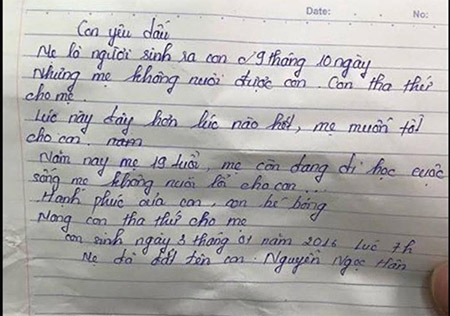 Date: No:
Con yêu dấu
Mẹ là người sinh ra con 9 tháng 10 ngày
Nhưng mẹ không nuôi được con. Con tha thứ
cho mẹ.
Lúc này đây hơn lúc nào hết, mẹ muốn tốt
cho con. nam
Năm nay mẹ 19 tuổi, mẹ còn đang đi học cuộc
sống mẹ không nuôi cho con...
Hạnh phúc của con, con bé bỏng
Mong con tha thứ cho mẹ
Con sinh ngày 3 tháng 01 năm 2016 lúc 7h
Mẹ đã đặt tên con. Nguyễn Ngọc Hân